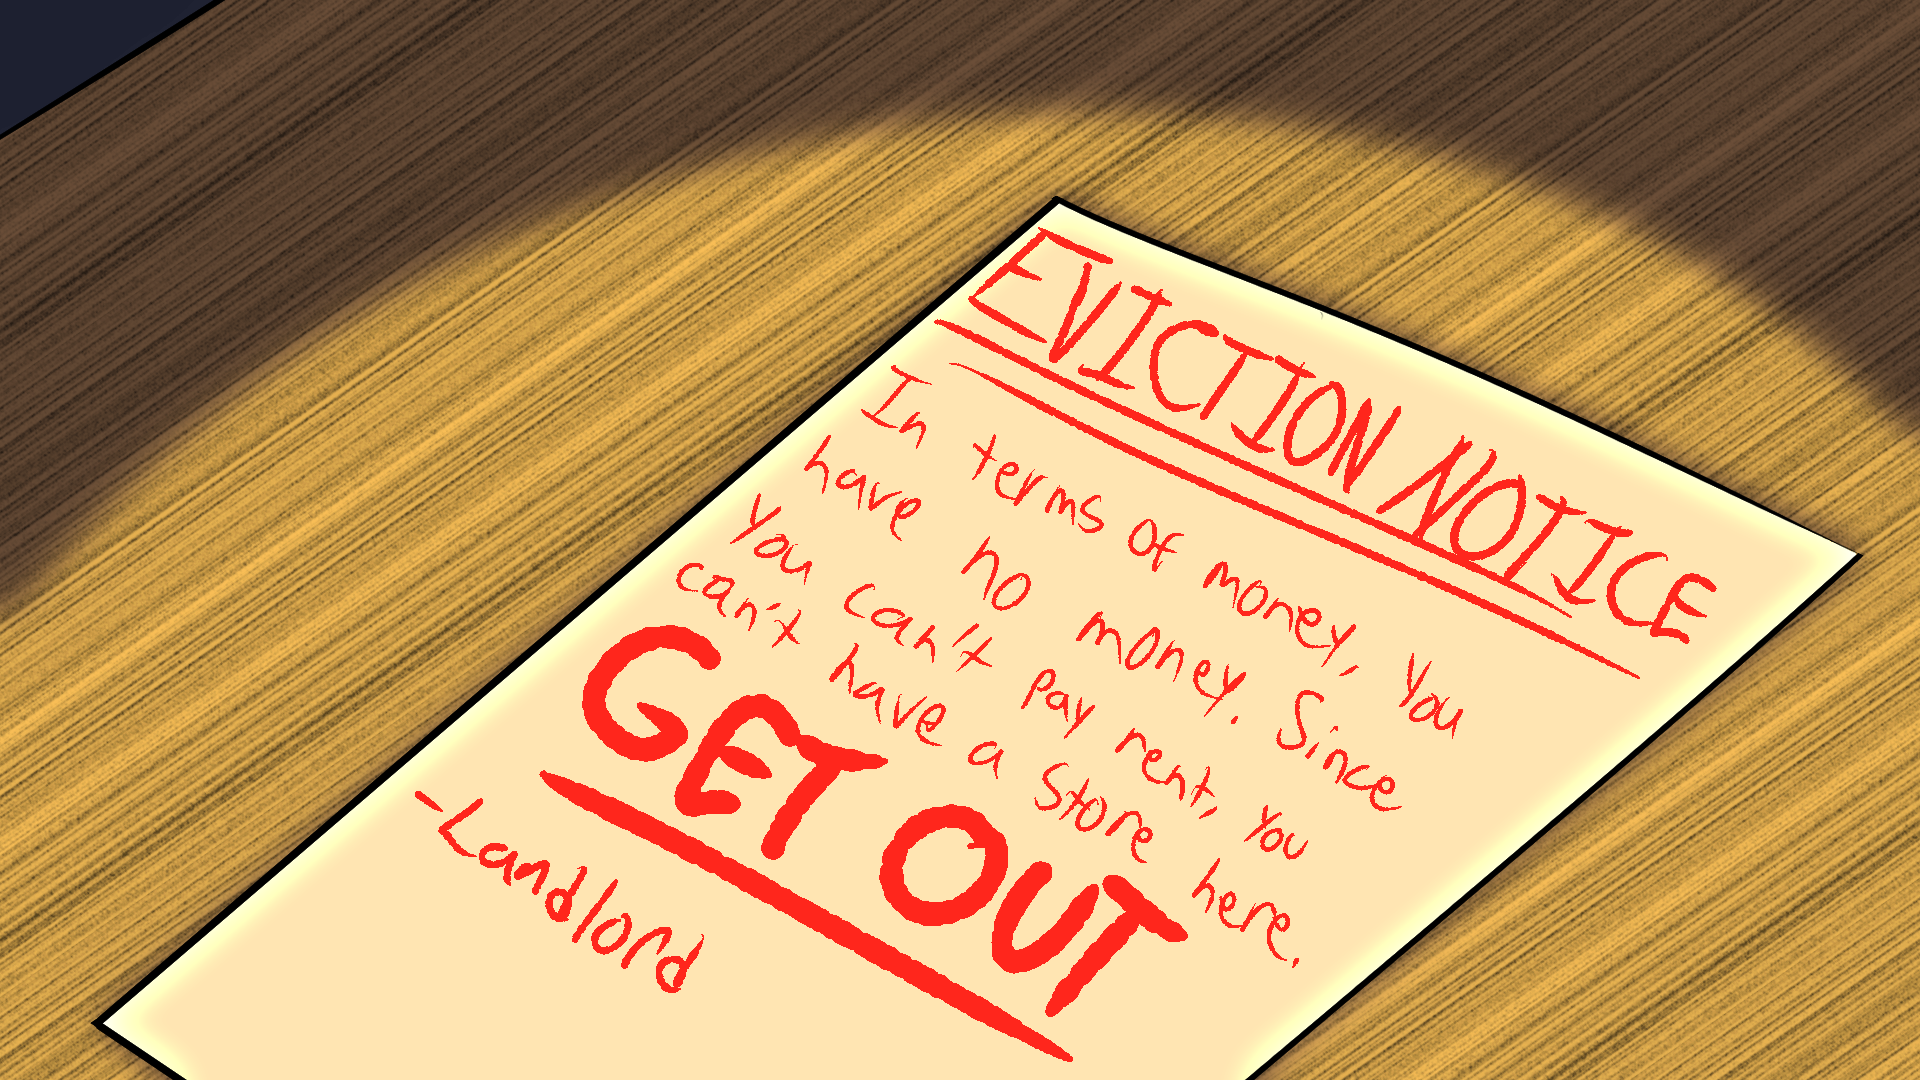 EVICTION NOTICE
In terms of money, you
have no money. Since
you can't pay rent, you
can't have a store here.
GET OUT
-Landlord